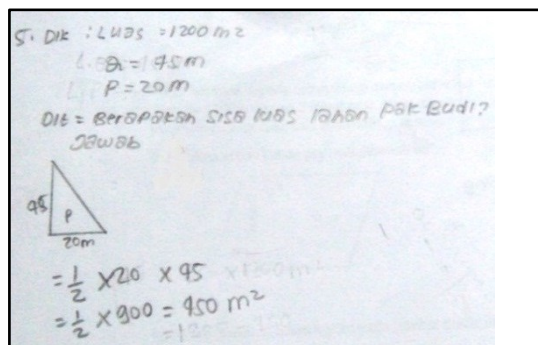 5. Dik : Luas = 1200 m2
a = 45 m
P = 20 m
Dit = Berapakah sisa luas lahan pak Budi?
Jawab
45
P
20m
= 1/2 × 20 × 45
= 1/2 × 900 = 450 m²